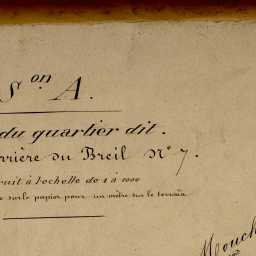 Son A.
du quartier dit.
rrière du Breil N° 7.
ruit à l'echelle de 1 à 1000
sur le papier pour un mètre sur le terrain
Mouch